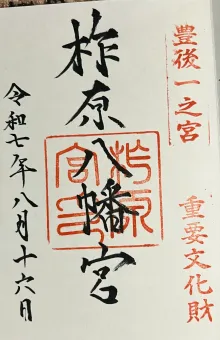 豊後一之宮
重要文化財
柞原八幡宮
柞原
宮印
令和七年八月十六日